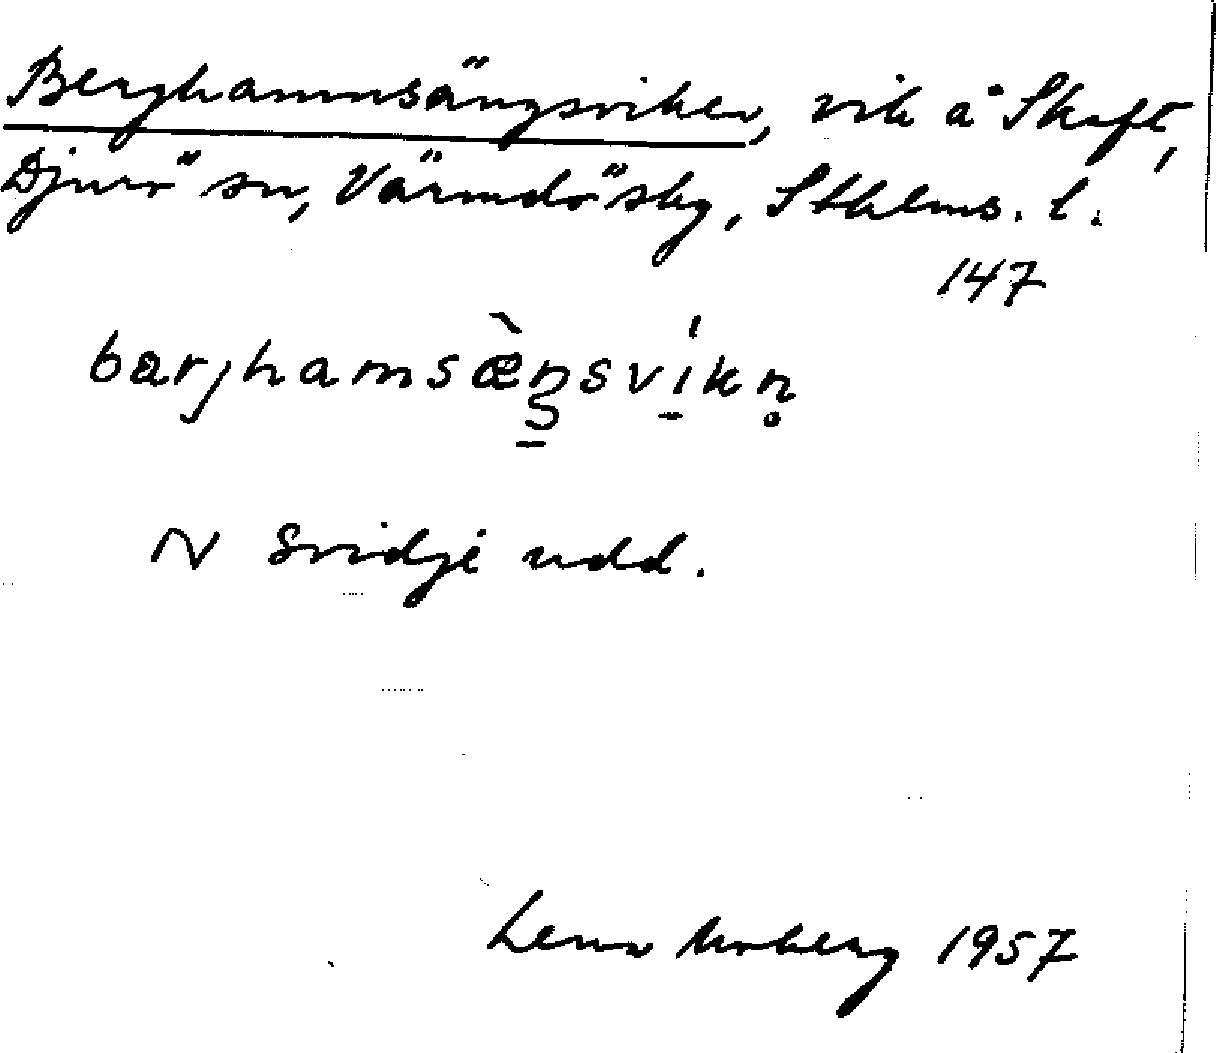 Berghamnsängsviken, vik å Skaft,
Djurö sn, Värmdö skg, Sthlms. l.
147
barjhamsæ̀ŋsvíkn̥
N Svidje udd.
Lena Moberg 1957